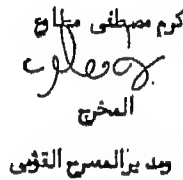 كرم مصطفى مطاوع
المخرج
ومدير المسرح القومى